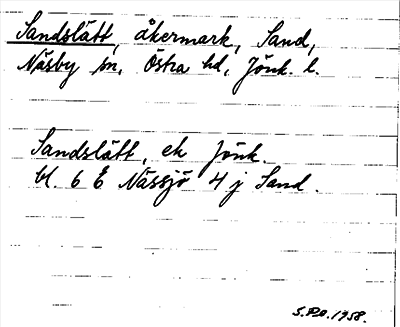 Sandslätt, åkermark, Sand,
Näsby sn, Östra hd, Jönk. l.
Sandslätt, ek Jönk.
bl. 6 E Nässjö 4 j Sand.
1958.